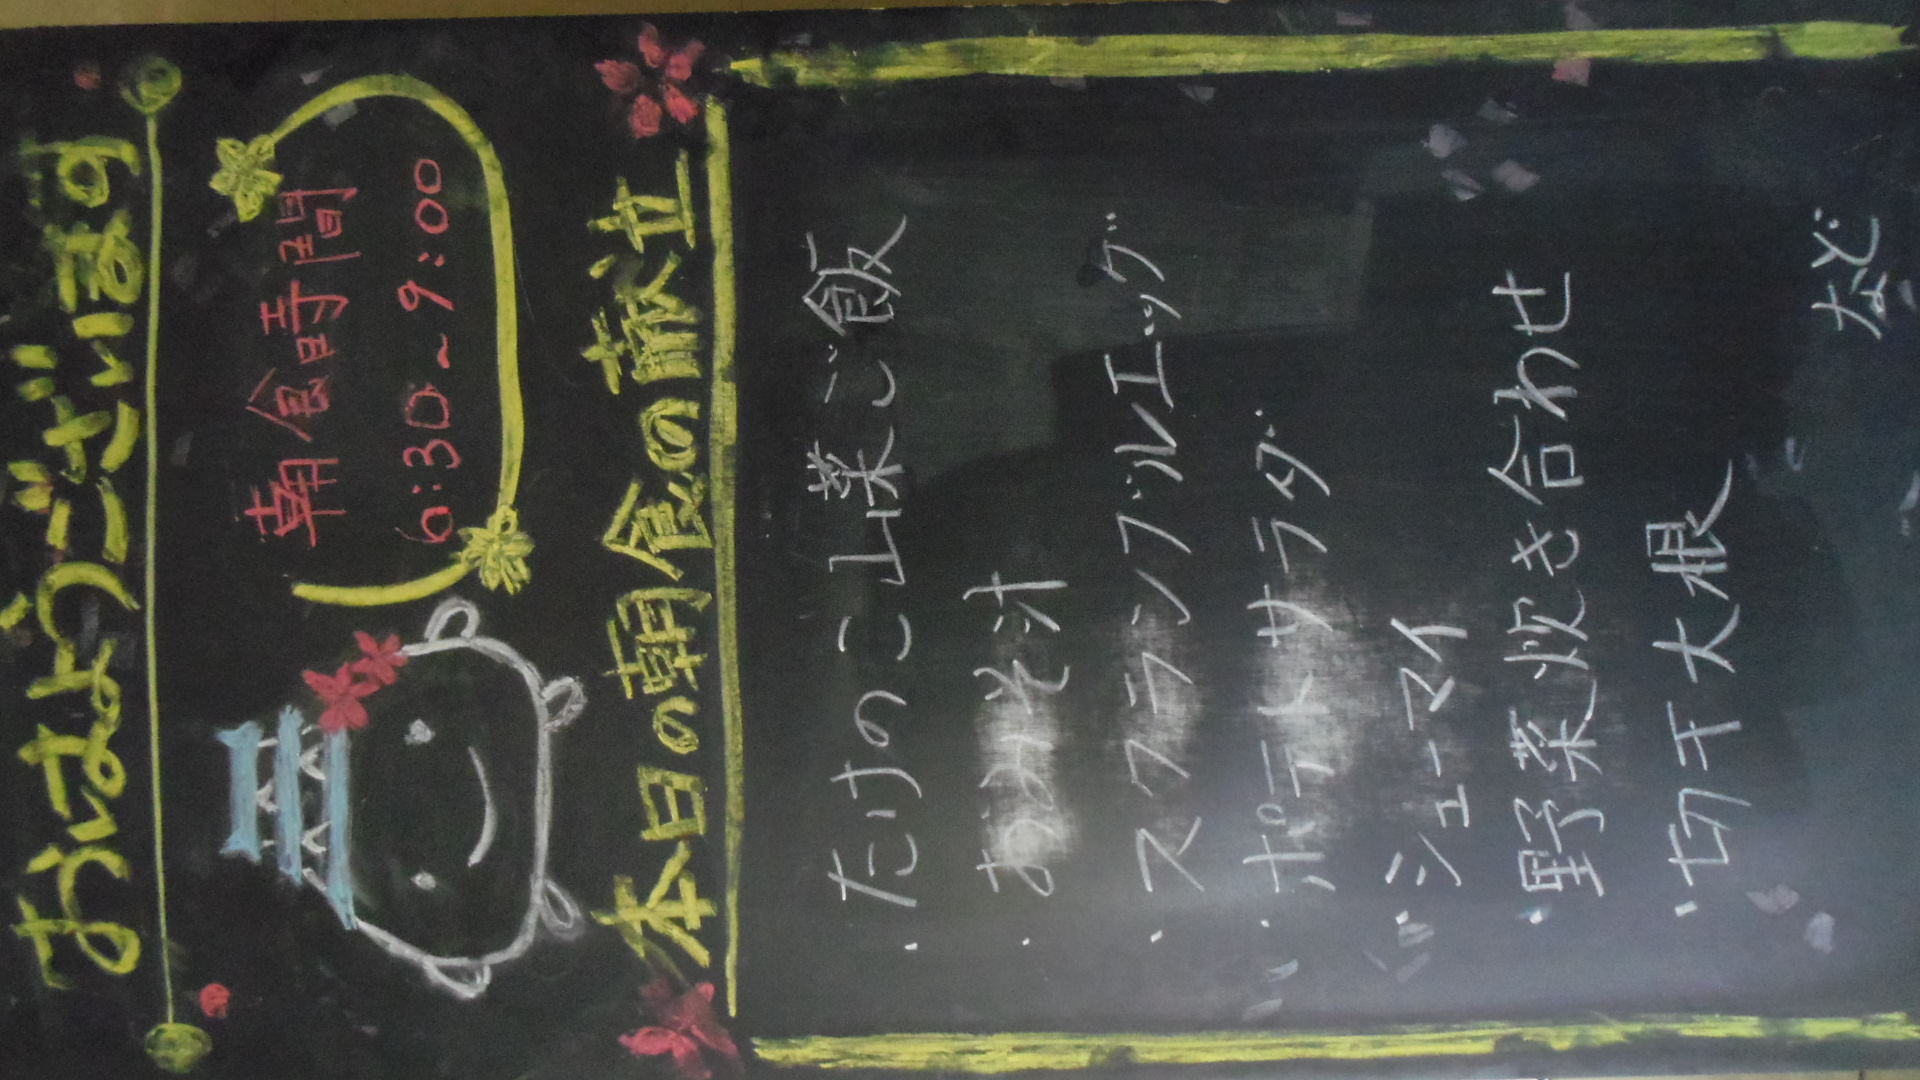 おはようございます
朝食時間
6:30~9:00
本日の朝食の献立
・たけのこ山菜ご飯
・おみそ汁
・スクランブルエッグ
・ポテトサラダ
・シューマイ
・野菜炊き合わせ
・切干大根
など